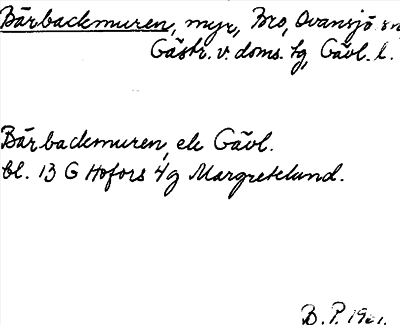 Bärbackmuren, myr, Bro, Ovansjö sn
Gästr. v. doms. tg, Gävl. l.
Bärbackmuren, ek Gävl.
bl. 13 G Hofors 4g Margretelund.
B. P. 19